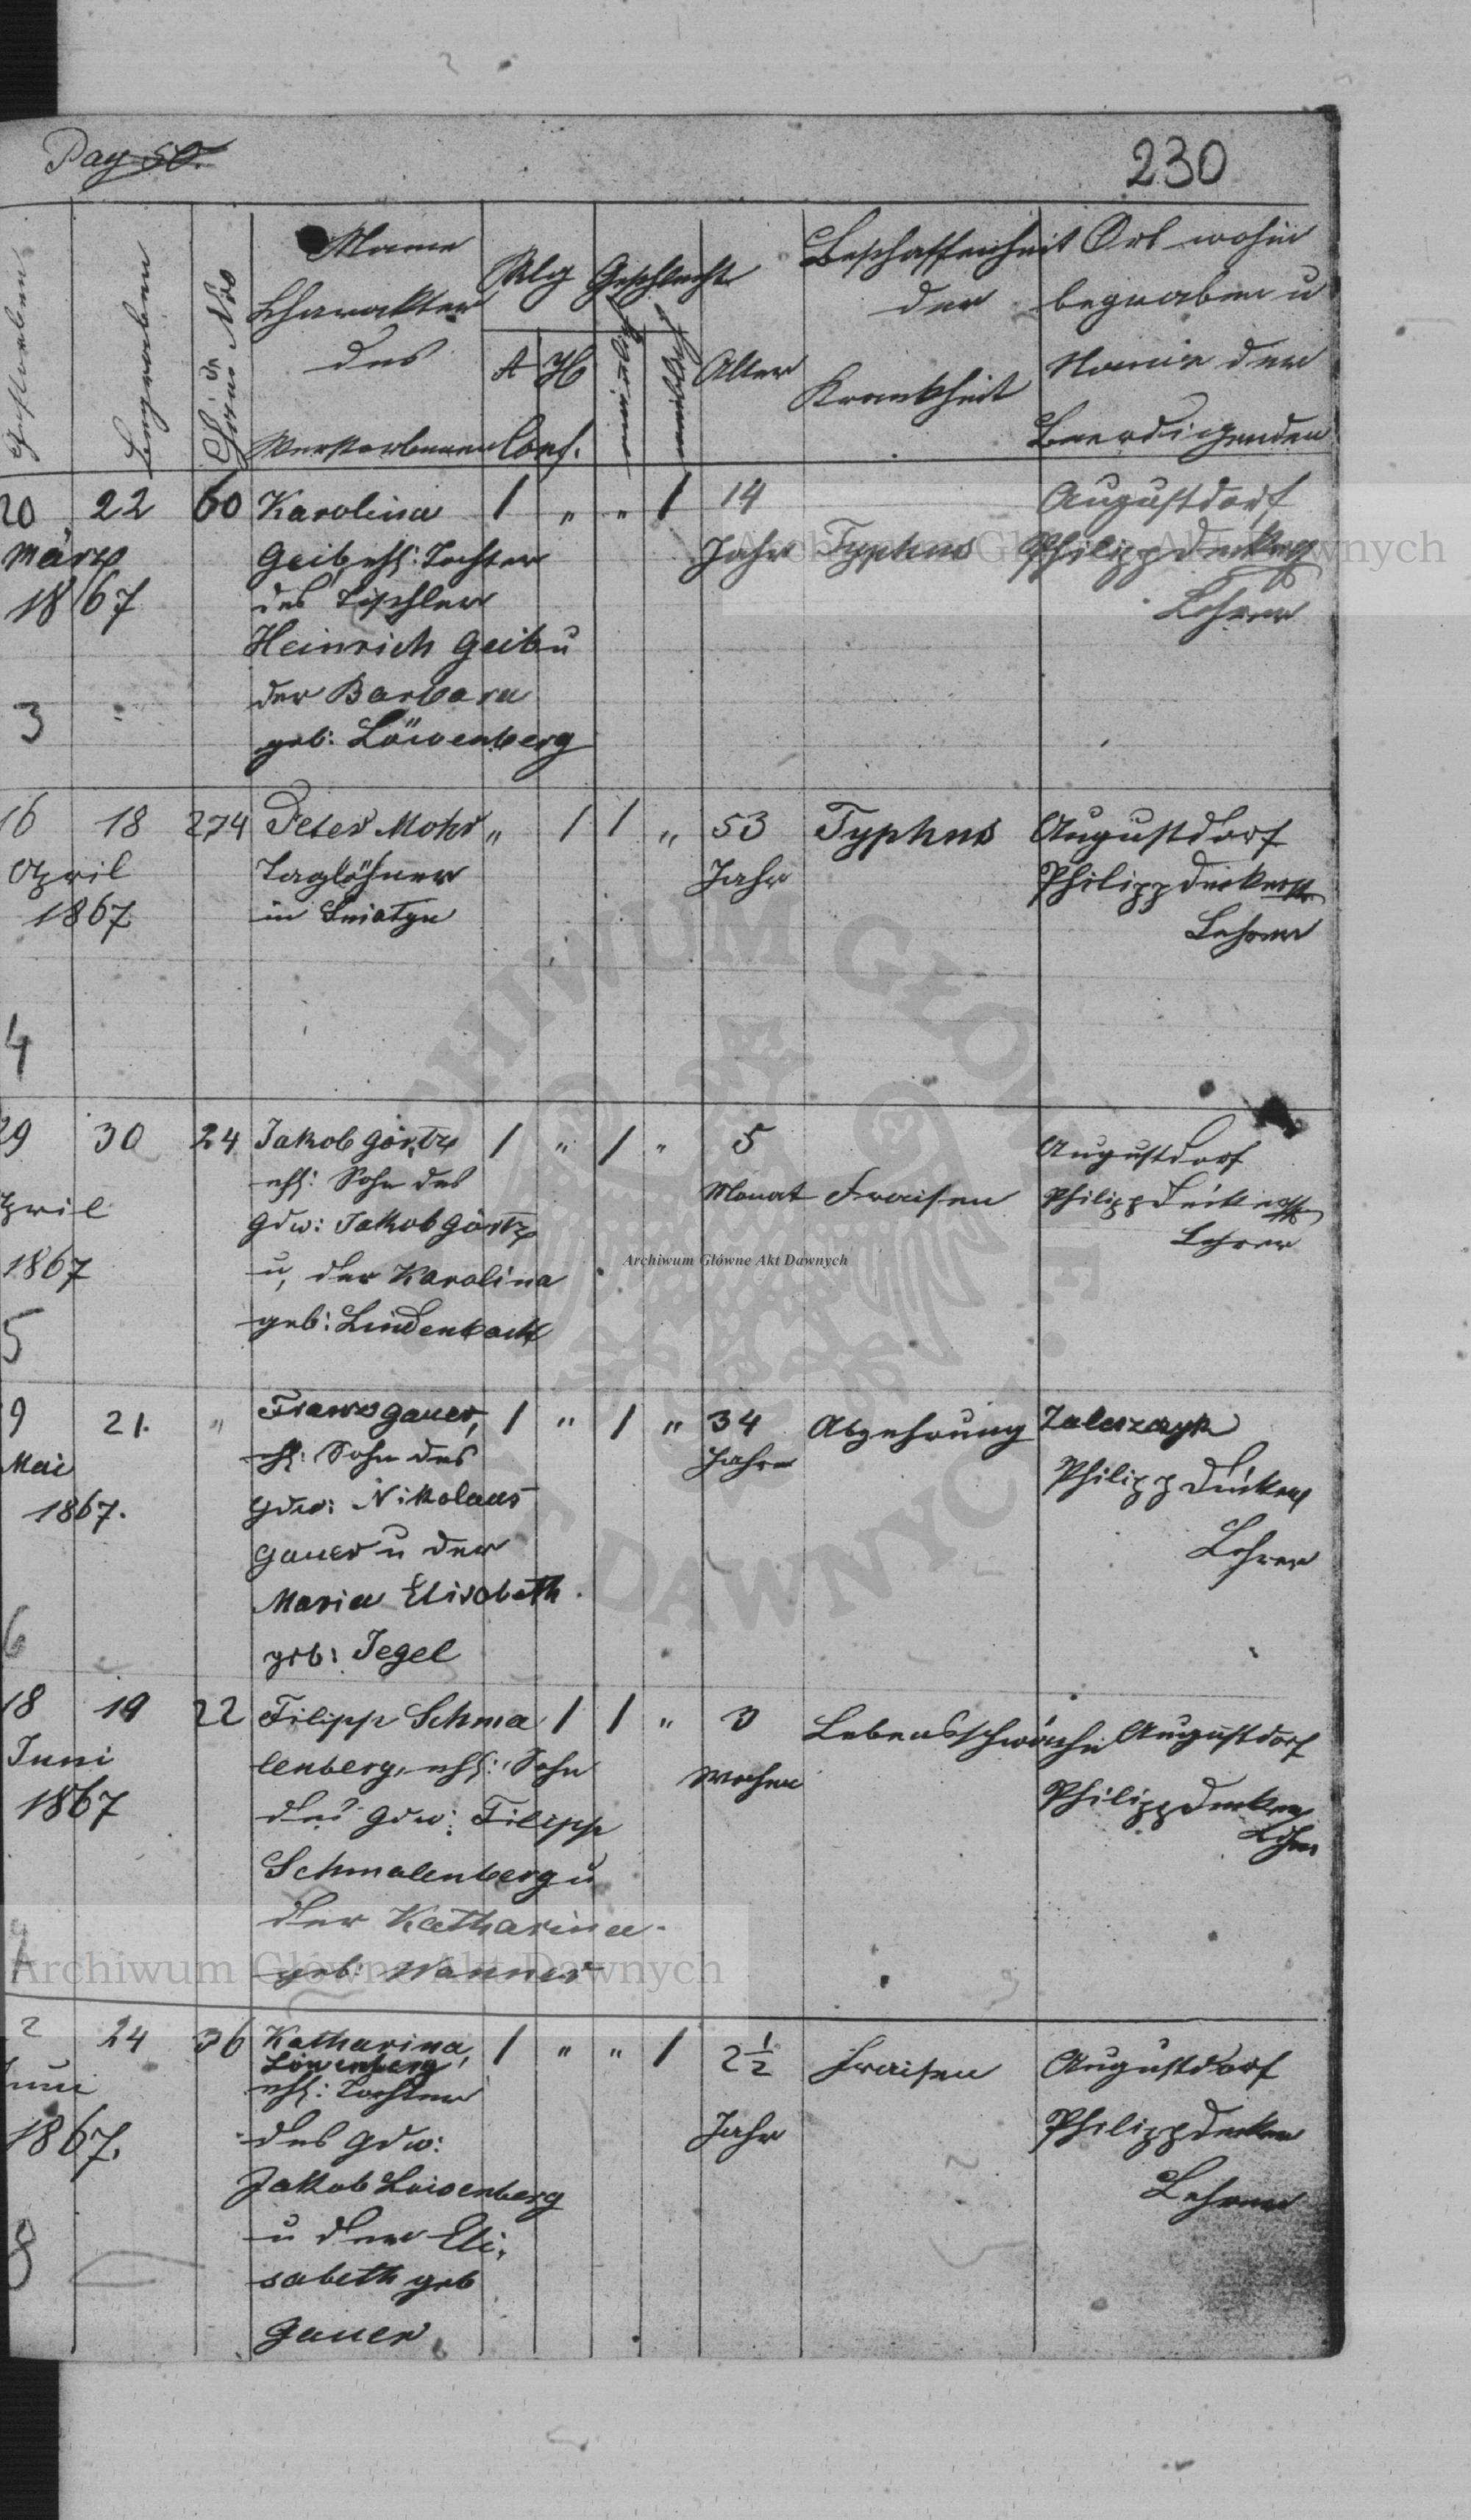 Pag 50.
230
Gestorben
Begraben
Haus Nro
Name
Charakter
des
Verstorbenen
Rlg
A
H
Conf.
Geschlecht
Alter
Beschaffenheit
der
Krankheit
Ort wohin
begraben u
Name des
Beerdigenden
20 22 60 Karolina 1 " " 1 14 Augustdorf
März Geib, ehl: Tochter Jahr Typhus Philipp Decker
1867 des Tischler Lehrer
Heinrich Geib u
3 der Barbara
geb: Löwenberg
16 18 274 Peter Mohr " 1 1 " 53 Typhus Augustdorf
April Taglöhner Jahr Philipp Decker
1867 in Sniatyn Lehrer
4
29 30 24 Jakob Görtz 1 " 1 " 5 Augustdorf
April ehl: Sohn des Monat Fraisen Philipp Decker
gdw: Jakob Görtz Lehrer
1867 u, der Karolina
5 geb: Lindenbach
9 21. " Franz Gauer, 1 " 1 " 34 Abzehrung Zaleszczyk
Mai ehl: Sohn des Jahre
1867. gdw: Nikolaus Philipp Decker
Gauer u der Lehrer
Maria Elisabeth
6 geb: Jegel
18 19 22 Filipp Schma 1 1 " 3 Lebensschwäche Augustdorf
Juni lenberg, ehl: Sohn Wochen
1867 des gdw: Filipp Philipp Decker
Schmalenberg u Lehrer
der Katharina
geb: Wanner
2 24 36 Katharina, 1 " " 1 2 1/2 Fraisen Augustdorf
Löwenberg
Juni ehl: Tochter
1867. des gdw: Jahr Philipp Decker
Jakob Lowenberg Lehrer
u der Eli-
8 sabeth geb
Gauer
Archiwum Główne Akt Dawnych
Archiwum Główne Akt Dawnych
Archiwum Główne Akt Dawnych
ARCHIWUM GŁÓWNE AKT DAWNYCH